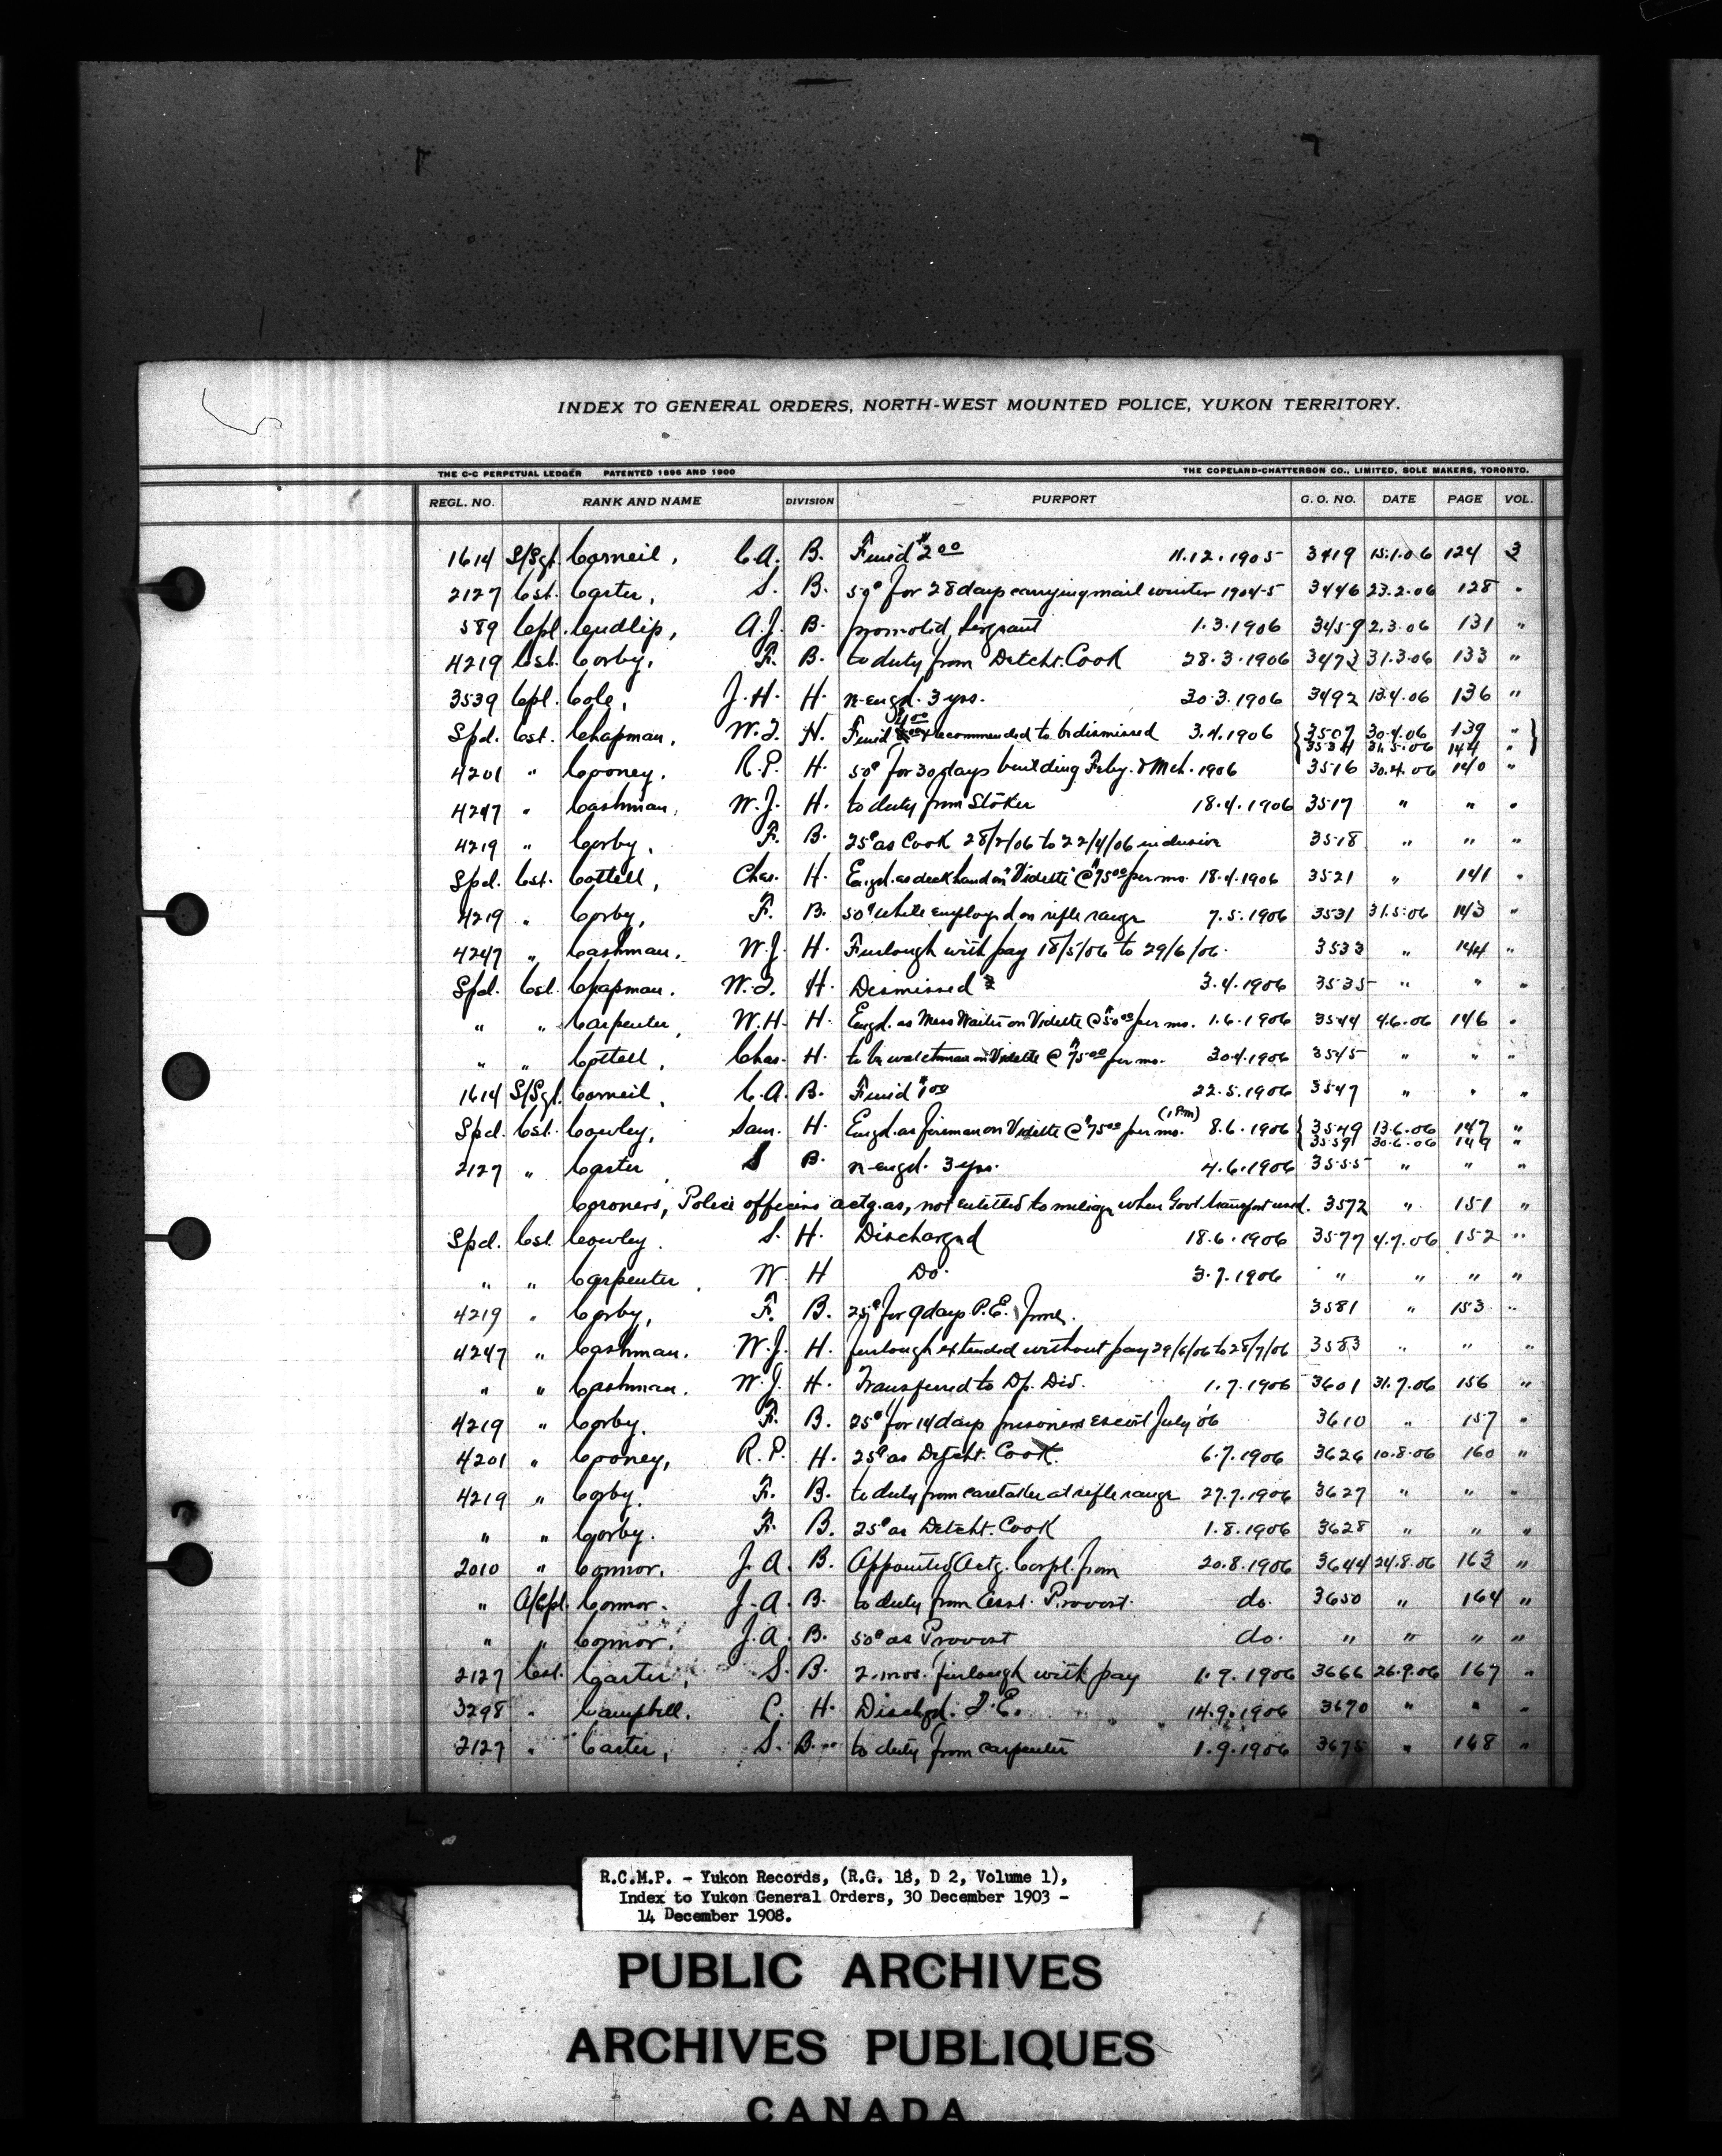 INDEX TO GENERAL ORDERS, NORTH-WEST MOUNTED POLICE, YUKON TERRITORY.
THE C-C PERPETUAL LEDGER PATENTED 1896 AND 1900 THE COPELAND-CHATTERSON CO., LIMITED, SOLE MAKERS, TORONTO.
REGL. NO. RANK AND NAME DIVISION PURPORT G. O. NO. DATE PAGE VOL.
1614 S/Sgt. Corneil, C.A. B. Fined $2 00 11.12.1905 3419 15.1.06 124 3
2127 Cst. Carter, S. B. 50¢ for 28 days carrying mail winter 1904-5 3446 23.2.06 128 "
589 Cpl. Cudlip, A.J. B. promoted Sergeant 1.3.1906 3459 2.3.06 131 "
4219 Cst. Corby, F. B. to duty from Detcht. Cook 28.3.1906 3473 31.3.06 133 "
3539 Cpl. Cole, J.H. H. re-engd. 3 yrs. 30.3.1906 3492 13.4.06 136 "
Spd. Cst. Chapman, W.J. H. Fined & recommended to be dismissed 3.4.1906 { 3507 30.4.06 139 " }
3534 31.5.06 144 "
4201 " Cooney, R.P. H. 50¢ for 30 days building Feby. & Mch. 1906 3516 30.4.06 140 "
4247 " Cashman, W.J. H. to duty from Stoker 18.4.1906 3517 " " "
4219 " Corby, F. B. 25¢ as Cook 28/2/06 to 22/4/06 inclusive 3518 " " "
Spd. Cst. Cottell, Chas. H. Engd. as deck hand on "Vidette" @ $75 00 per mo. 18.4.1906 3521 " 141 "
4219 " Corby, F. B. 50¢ while employed on rifle range 7.5.1906 3531 31.5.06 143 "
4247 " Cashman, W.J. H. Furlough with pay 18/5/06 to 29/6/06. 3533 " 144 "
Spd. Cst. Chapman, W.J. H. Dismissed 3.4.1906 3535 " " "
" " Carpenter, W.H. H. Engd. as Mess Waiter on Vidette @ $50 00 per mo. 1.6.1906 3544 4.6.06 146 "
" " Cottell, Chas. H. to be watchman on Vidette @ $75 00 per mo. 30.4.1906 3545 " " "
1614 S/Sgt. Corneil, C.A. B. Fined $1 00 22.5.1906 3547 " " "
Spd. Cst. Cowley, Sam. H. Engd. as fireman on Vidette @ $75 00 per mo. (1 P.m) 8.6.1906 { 3549 13.6.06 147 "
3559 30.6.06 149 "
2127 " Carter, S B. re-engd. 3 yrs. 4.6.1906 3555 " " "
Coroners, Police officers actg. as, not entitled to mileage when Govt. transport used. 3572 " 151 "
Spd. Cst. Cowley. S. H. Discharged 18.6.1906 3577 4.7.06 152 "
" " Carpenter, W. H Do. 3.7.1906 " " " "
4219 " Corby, F. B. 25¢ for 9 days P.E. June. 3581 " 153 "
4247 " Cashman. W.J. H. furlough extended without pay 29/6/06 to 28/7/06 3583 " " "
" " Cashman. W.J. H. Transferred to Dp. Div. 1.7.1906 3601 31.7.06 156 "
4219 " Corby. F. B. 25¢ for 14 days prisoners escort July '06 3610 " 157 "
4201 " Cooney, R.P. H. 25¢ as Detcht. Cook. 6.7.1906 3626 10.8.06 160 "
4219 " Corby. F. B. to duty from caretaker at rifle range 27.7.1906 3627 " " "
" " Corby. F. B. 25¢ as Detcht. Cook 1.8.1906 3628 " " "
2010 " Connor, J.A. B. Appointed Actg. Corpl. from 20.8.1906 3644 24.8.06 163 "
" A/Cpl. Connor. J.A. B. to duty from Asst. Provost. do. 3650 " 164 "
" " Connor, J.A. B. 50¢ as Provost do. " " " "
2127 Cst. Carter, S. B. 2. mos. furlough with pay 1.9.1906 3666 26.9.06 167 "
3298 " Campbell. C. H. Dischgd. T.E. 14.9.1906 3670 " " "
2127 " Carter, S. B. to duty from carpenter 1.9.1906 3675 " 168 "
R.C.M.P. - Yukon Records, (R.G. 18, D 2, Volume 1),
Index to Yukon General Orders, 30 December 1903 -
14 December 1908.
PUBLIC ARCHIVES
ARCHIVES PUBLIQUES
CANADA